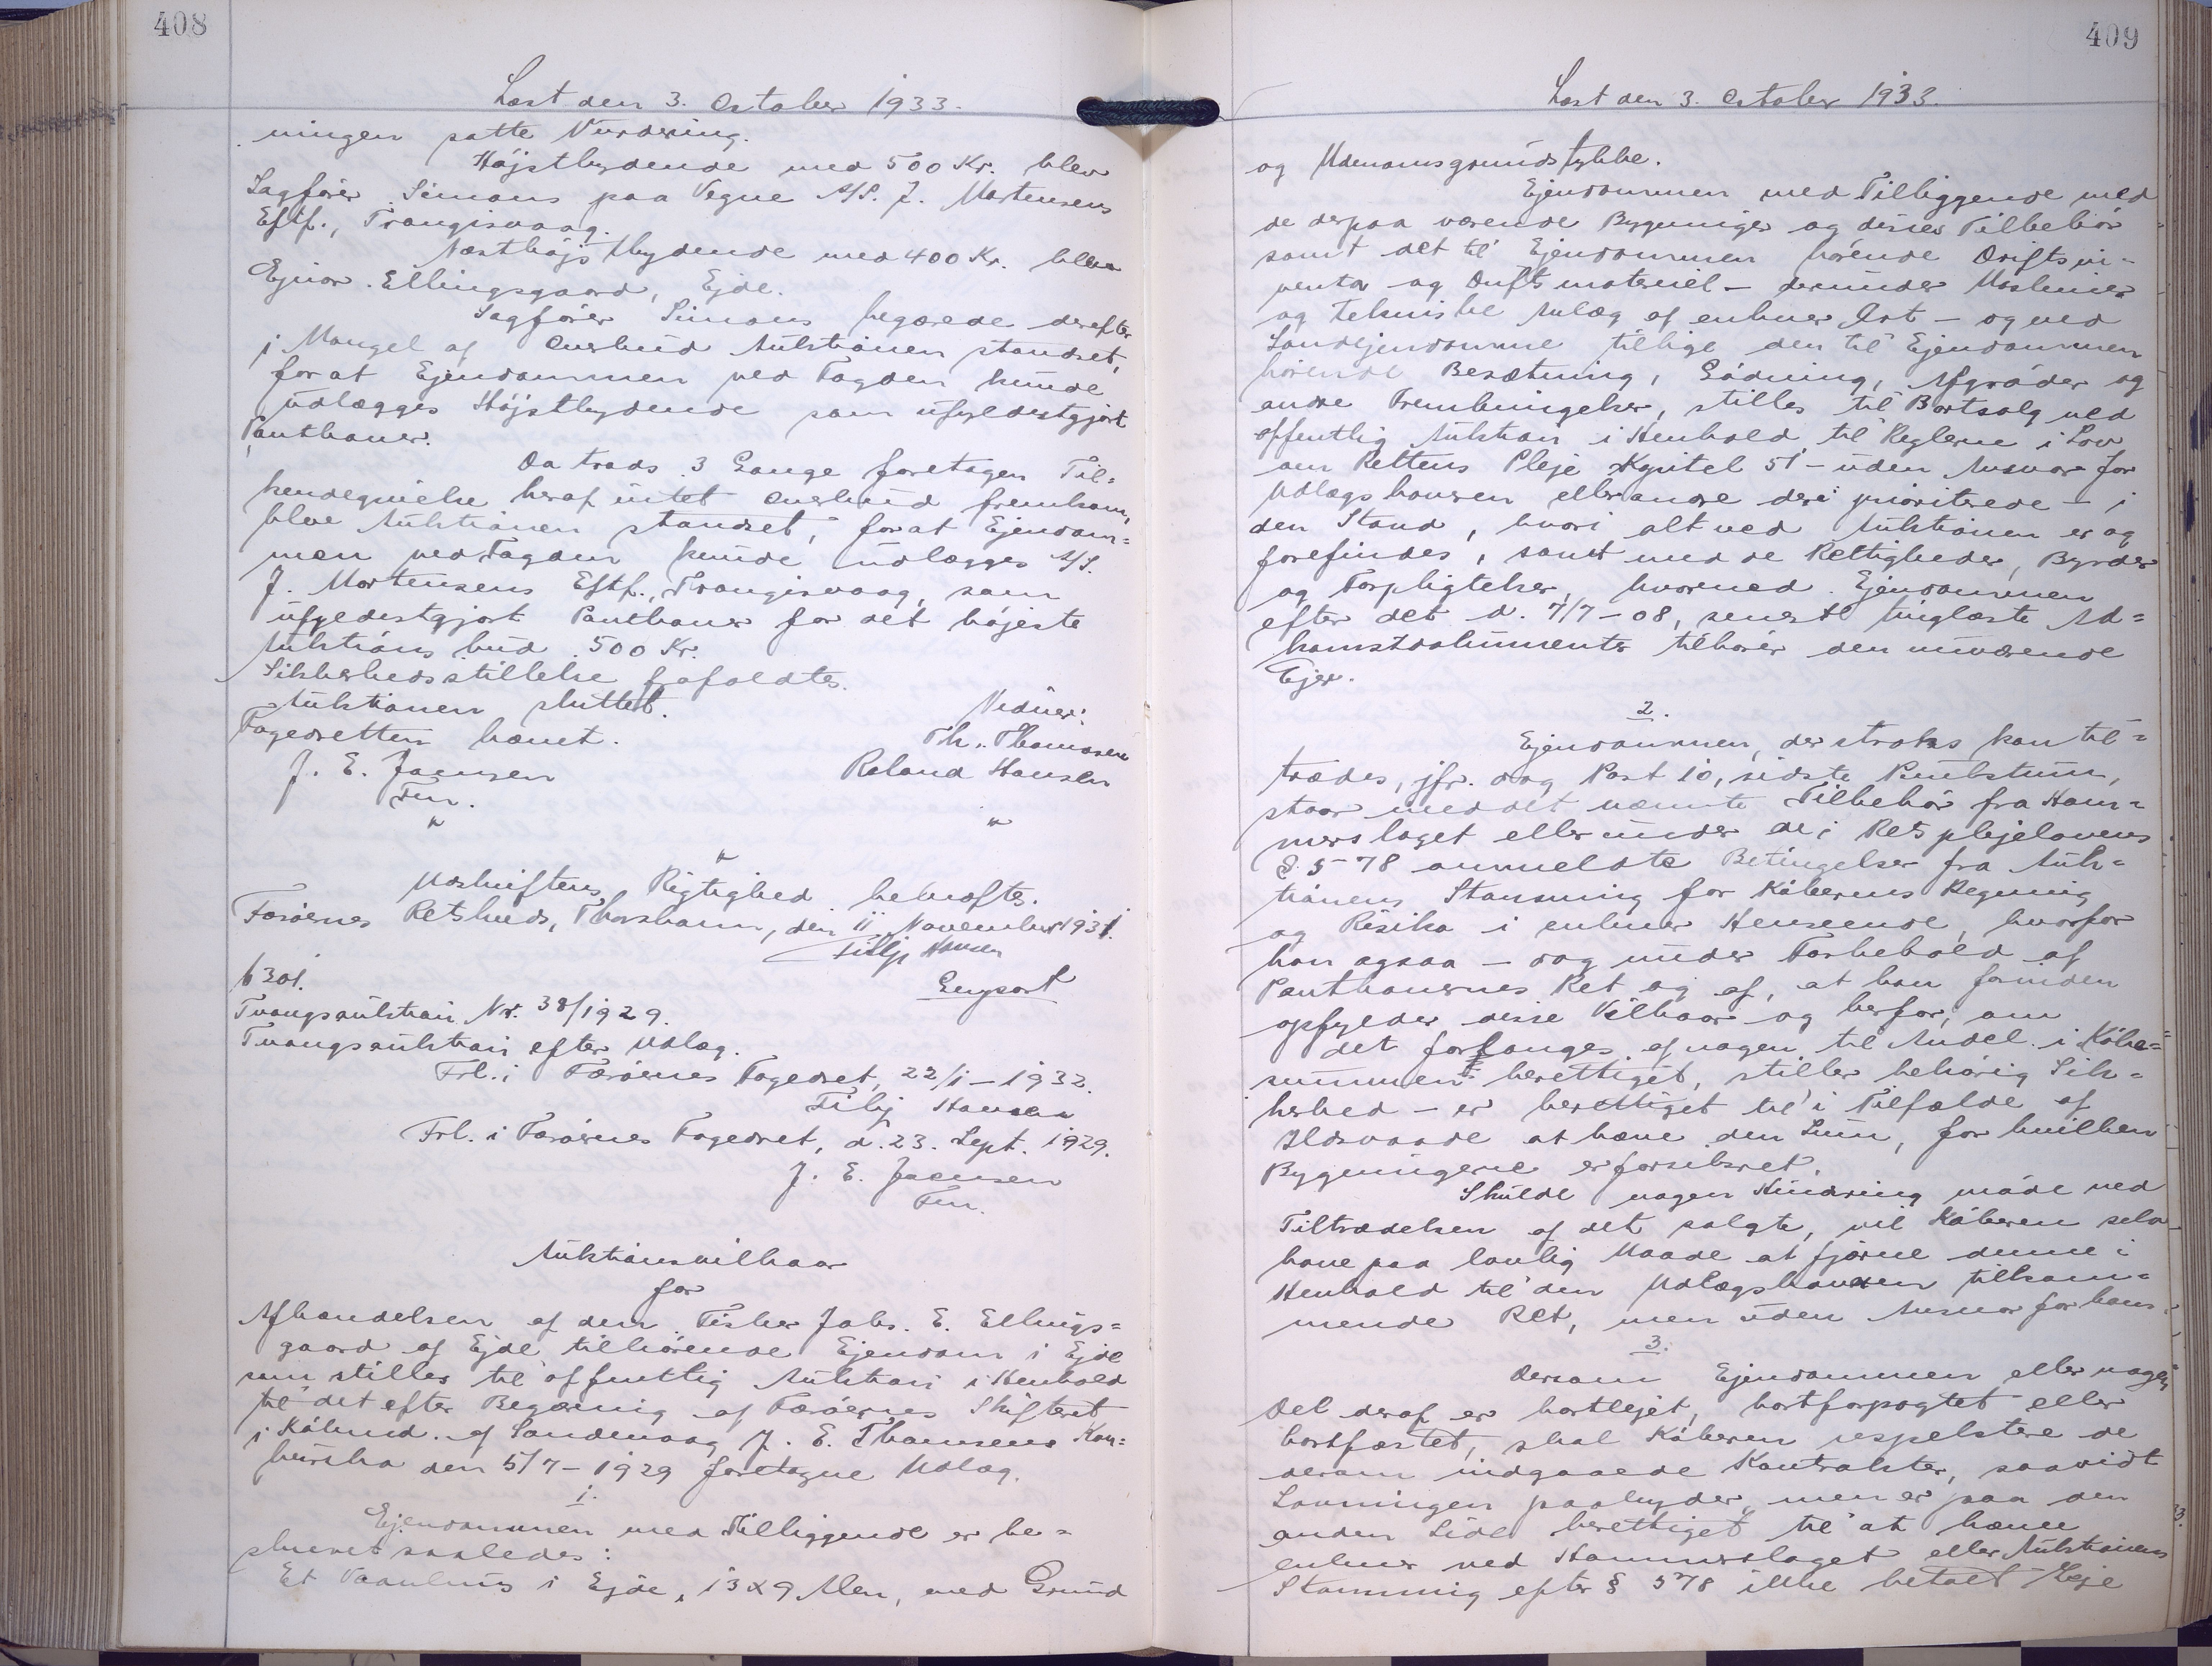 408
Læst den 3. October 1933.
ningen satte Vurdering.
Højstbydende med 500 Kr. blev
Sagfører Simons paa Vegne A/S. J. Mortensens
Eftf., Trangisvaag.
Næsthøjstbydende med 400 Kr. blev
Ejnar Ellingsgaard, Ejde.
Sagfører Simons begærede derefter
i Mangel af Overbud Auktionen standset,
for at Ejendommen ved Fogden kunde
udlægges Højstbydende som ufyldestgjort
Panthaver.
Da trods 3 Gange foretagen Til=
kendegivelse heraf intet Overbud fremkom,
blev Auktionen standset, for at Ejendom=
men ved Fogden kunde udlægges A/S.
J. Mortensens Eftf., Trangisvaag, som
ufyldestgjort Panthaver for det højeste
Auktions bud 500 Kr.
Sikkerhedsstillelse frafaldtes.
Auktionen sluttet.
Vidner:
Fogedretten hævet.
Th. Thomsen
J. E. Joensen
Roland Hansen
Fm.
"
"
"
Udskriftens Rigtighed bekræftes.
Færøernes Retskreds, Thorshavn, den 11 November 1931.
Filip Hansen
6301.
Genpart
Tvangsauktion Nr. 38/1929.
Tvangsauktion efter Udlæg.
Frl. i Færøernes Fogedret, 22/1-1932.
Filip Hansen
Frl. i Færøernes Fogedret, d. 23. Sept. 1929.
J. E. Joensen
Fm.
Auktionsvilkaar
for
Afhændelsen af den Fisker Johs. E. Ellings=
gaard af Ejde tilhørende Ejendom i Ejde
som stilles til offentlig Auktion i Henhold
til det efter Begæring af Færøernes Skifteret
i Købmd. af Sandevaag J. E. Thomsens Kon=
kursbo den 5/7-1929 foretagne Udlæg.
1.
Ejendommen med Tilliggende er be=
skrevet saaledes:
Et Vaanhus i Ejde, 13 x 9 Alen, med Grund
409
Læst den 3. October 1933.
og Udenomsgrundstykke.
Ejendommen med Tilliggende med
de derpaa værende Bygninger og disses Tilbehør
samt det til Ejendommen hørende Driftsin=
ventar og Driftsmateriel - derunder Maskiner
og tekniske Anlæg af enhver Art - og ved
Landejendomme tillige den til Ejendommen
hørende Besætning, Gødning, Afgrøder og
andre Frembringelser, stilles til Bortsalg ved
offentlig Auktion i Henhold til Reglerne i Lov
om Rettens Pleje Kapitel 51 - uden Ansvar for
Udlægshaveren eller andre deri prioriterede - i
den Stand, hvori alt ved Auktionen er og
forefindes, samt med de Rettigheder, Byrder
og Forpligtelser, hvormed Ejendommen
efter det d. 7/7-08, senest tinglæste Ad=
komstdokumenter tilhører den nuværende
Ejer.
2.
Ejendommen, der straks kan til=
trædes, jfr. dog Post 10, sidste Punktum,
staar med det nævnte Tilbehør fra Ham=
merslaget eller under de i Retsplejelovens
§ 578 ommeldte Betingelser fra Auk=
tionens Standsning for Køberens Regning
og Risiko i enhver Henseende, hvorfor
han ogsaa - dog under Forbehold af
Panthavernes Ret og af, at han forinden
opfylder disse Vilkaar og herfor, om
det forlanges af nogen til Andel i Købe=
summen berettiget, stiller behørig Sik=
kerhed - er berettiget til i Tilfælde af
Ildsvaade at hæve den Sum, for hvilken
Bygningerne er forsikret.
Skulde nogen Hindring møde ved
Tiltrædelsen af det solgte, vil Køberen selv
have paa lovlig Maade at fjerne denne i
Henhold til den Udlægshaveren tilkom=
mende Ret, men uden Ansvar for ham.
3.
Dersom Ejendommen eller nogen
Del deraf er bortlejet, bortforpagtet eller
bortfæstet, skal Køberen respektere de
derom indgaaede Kontrakter, saavidt
Lovningen paabyder, men er paa den
anden Side berettiget til at hæve
enhver ved Hammerslaget eller Auktionens
Standsning efter § 578 ikke betalt Leje